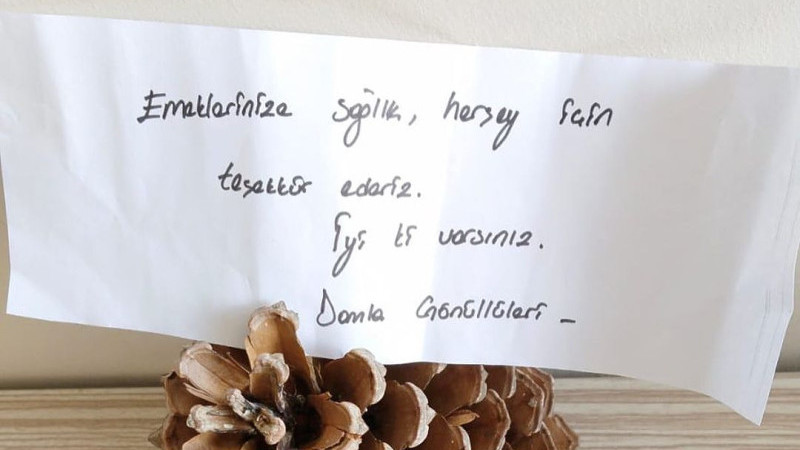 Emeklerinize sağlık, herşey için
teşekkür ederiz.
İyi ki varsınız.
Damla Gönüllüleri _